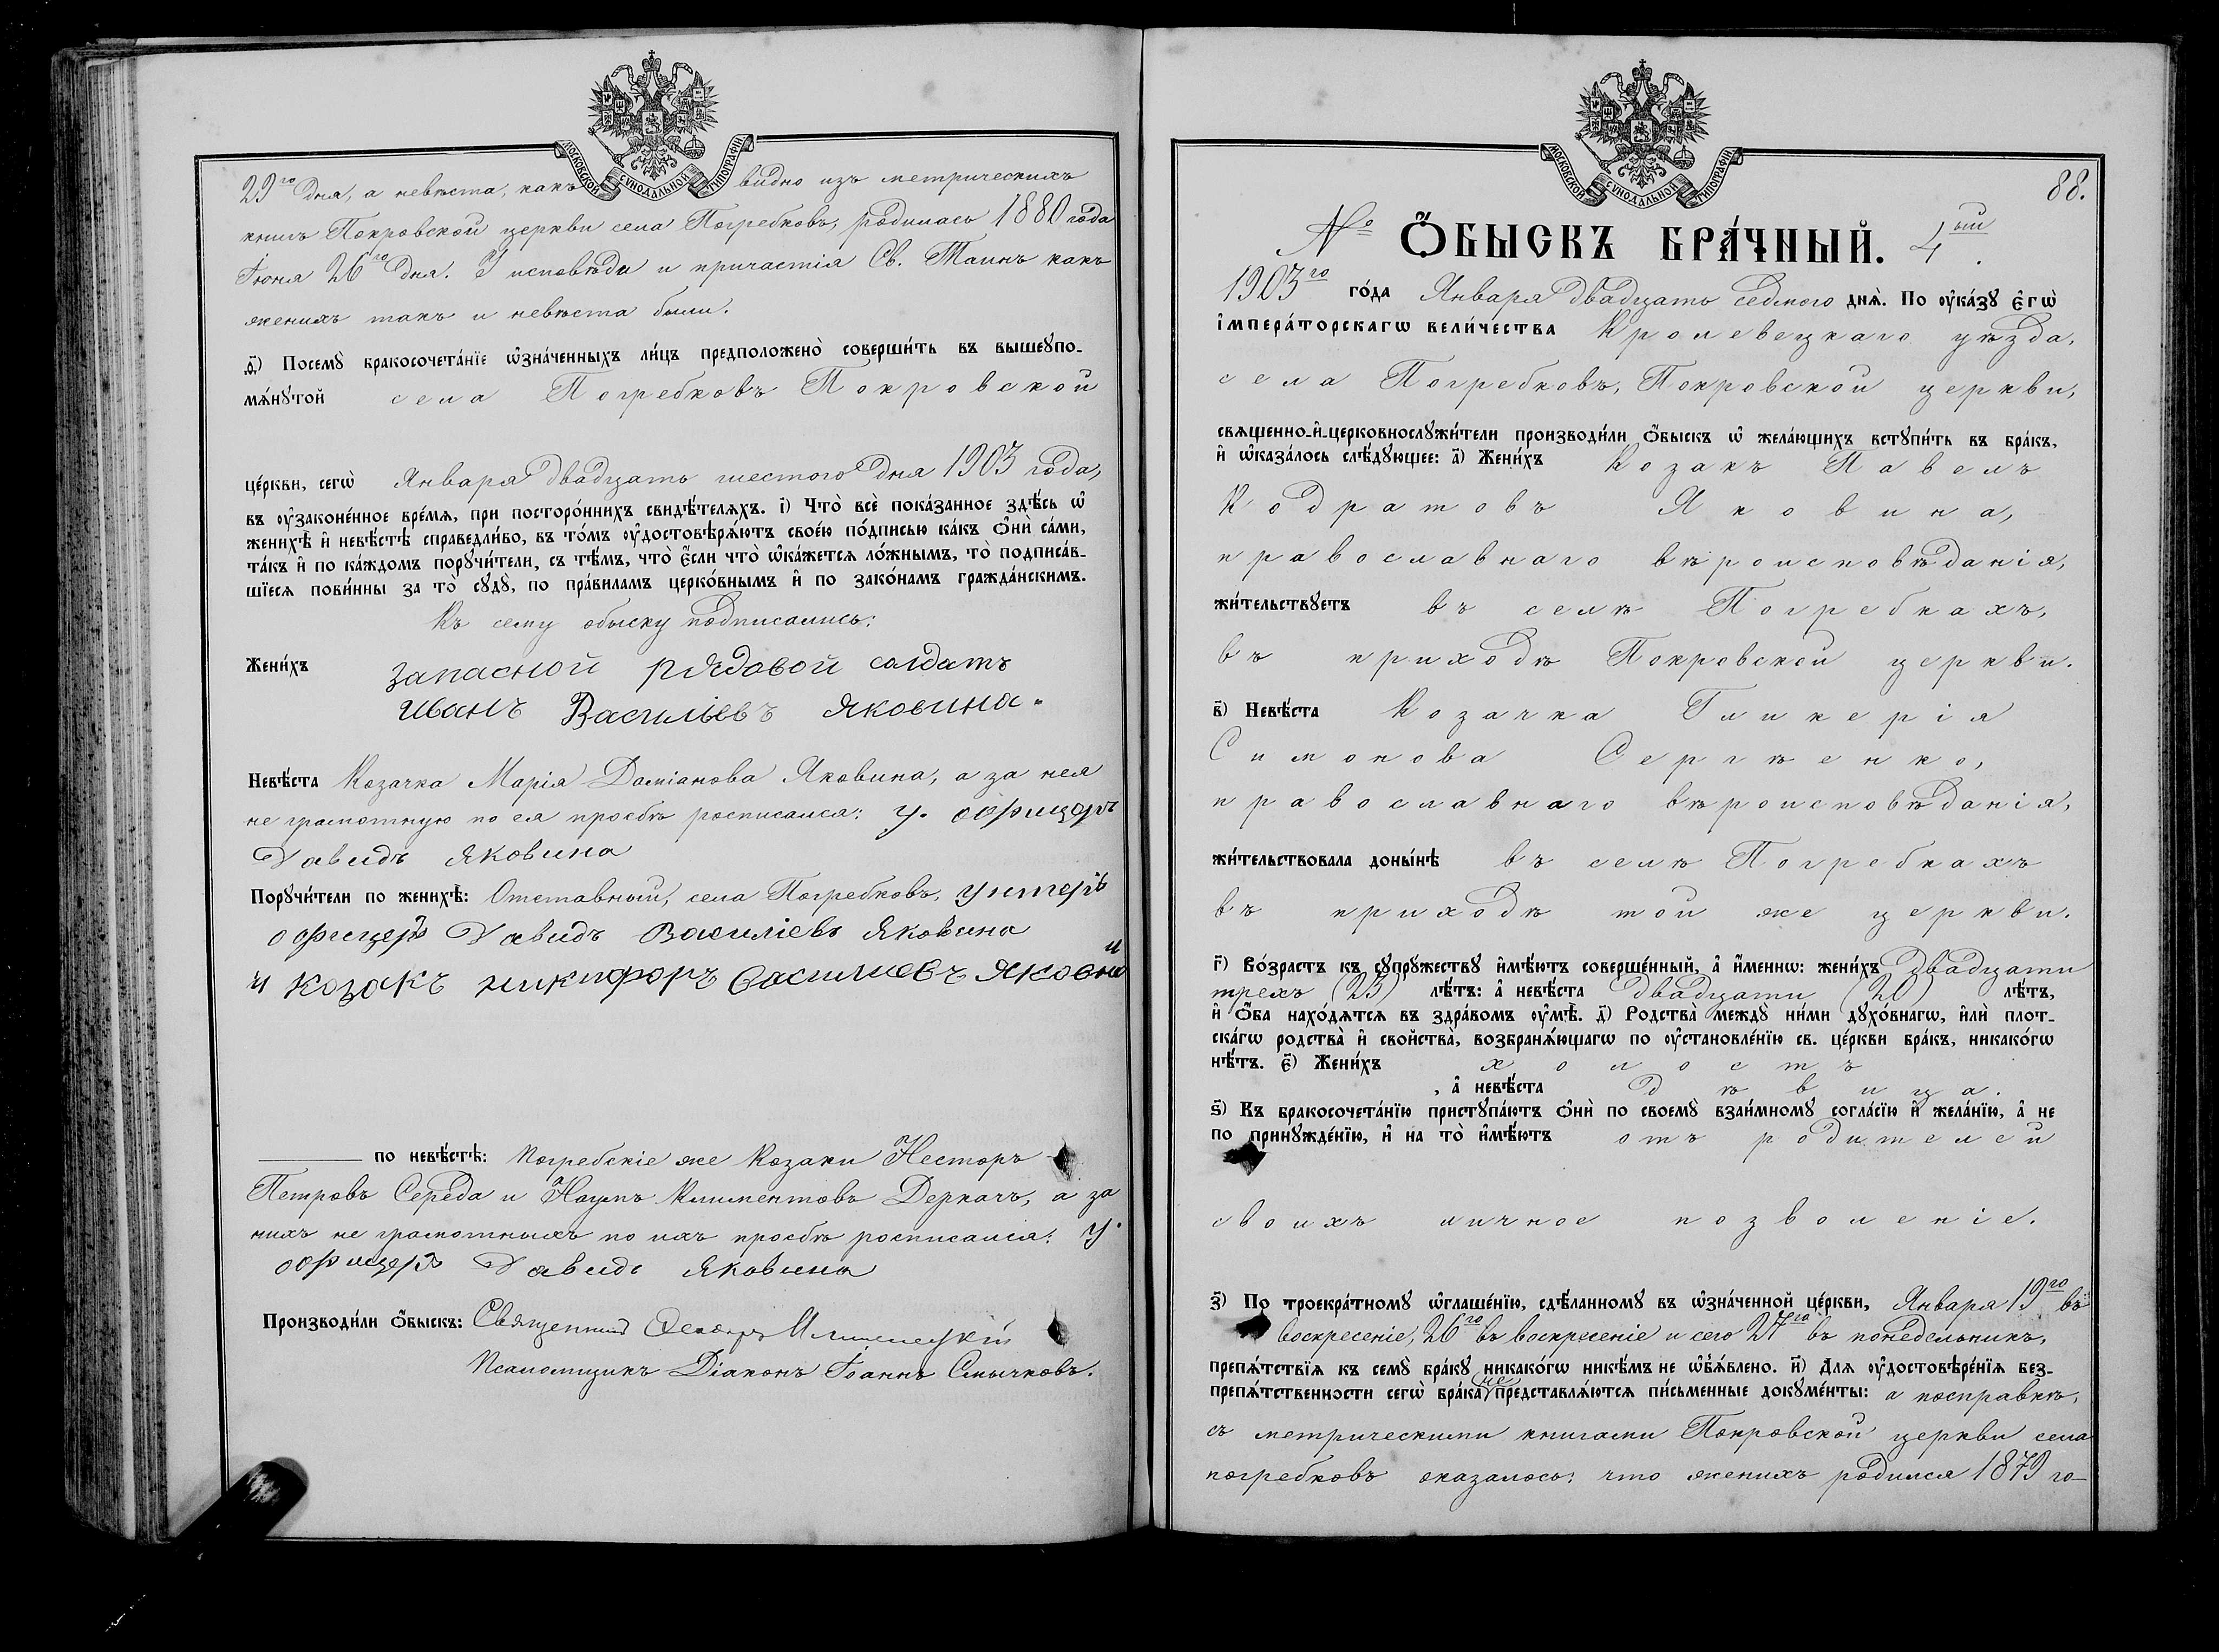 МОСКОВСКОЙ СѴНОДАЛЬНОЙ ТИПОГРАФІИ.
29го дня, а невѣста, какъ видно изъ метрическихъ
книгъ Покровской церкви села Погребковъ, родилась 1880 года
Іюня 26го дня. У исповѣди и причастія Св. Таинъ какъ
женихъ такъ и невѣста были.
д҃) Посемꙋ бракосочета́нїе ѡ҆зна́ченныхъ ли́цъ предположено̀ соверши́ть въ вышеꙋпо-
мѧ́нꙋтой села Погребковъ Покровской
це́ркви, сегѡ̀ Января двадцать шестого дня 1903 года,
въ ᲂу҆законе́нное вре́мѧ, при посторо́ннихъ свидѣ́телѧхъ. і҃) Что̀ всѐ пока́занное здѣ́сь ѡ҆
женихѣ̀ и҆ невѣ́стѣ справедли́во, въ то́мъ ᲂу҆достовѣрѧ́ютъ свое́ю по́дписью ка́къ ѻ҆нѝ са́ми,
та́къ и҆ по ка́ждомъ порꙋчи́тели, съ тѣ́мъ, что̀ є҆́сли что̀ ѡ҆ка́жетсѧ ло́жнымъ, то̀ подписа́в-
шїесѧ пови́нны за то̀ сꙋдꙋ̀, по пра́виламъ церко́внымъ и҆ по зако́намъ гражда́нскимъ.
Къ сему обыску подписались:
Жени́хъ запасной рядовой солдатъ
иванъ Васильевъ яковина.
Невѣ́ста Козачка Марія Даміанова Яковина, а за нея
не грамотную по ея просбѣ росписался: у. офицеръ
Давидъ яковина
Порꙋчи́тели по женихѣ̀: Отставный, села Погребковъ, унтеръ
офицеръ Давидъ Василіевъ яковина
и козакъ никифоръ василиевъ яковина
по невѣ́стѣ: Погребскіе же Козаки Несторъ
Петровъ Середа и Наумъ Климентовъ Деркачъ, а за
нихъ не грамотныхъ по ихъ просбѣ росписался: у.
офицеръ Давидъ яковина
Производи́ли ѻ҆́быскъ: Священник
Псаломщикъ Діаконъ Іоаннъ Смычковъ.
МОСКОВСКОЙ СѴНОДАЛЬНОЙ ТИПОГРАФІИ.
88.
№ ѺБЫСКЪ БРА́ЧНЫЙ. 4ый.
1903го го́да Января двадцать седмого днѧ̀. По ᲂу҆ка́зꙋ є҆гѡ̀
і҆мпера́торскагѡ вели́чества Кролевецкаго уѣзда,
села Погребковъ, Покровской церкви,
свѧщенно-и҆-церковнослꙋжи́тели производи́ли ѻ҆́быскъ ѡ҆ жела́ющихъ встꙋпи́ть въ бра́къ,
и҆ ѡ҆каза́лось слѣ́дꙋющее: а҃) Жени́хъ Козакъ Павелъ
Кодратовъ Яковина,
православнаго вѣроисповѣданія,
жи́тельствꙋетъ въ селѣ Погребкахъ,
въ приходѣ Покровской церкви.
в҃) Невѣ́ста Козачка Гликерія
Симонова Сергѣенко,
православнаго вѣроисповѣданія,
жи́тельствовала доны́нѣ въ селѣ Погребкахъ
въ приходѣ той же церкви.
г҃) Во́зрастъ къ сꙋпрꙋ́жествꙋ и҆мѣ́ютъ соверше́нный, а҆ и҆́менно: жени́хъ двадцати
трехъ (23) лѣ́тъ: а҆ невѣ́ста двадцати (20) лѣ́тъ,
и҆ ѻ҆́ба нахо́дѧтсѧ въ здра́вомъ ᲂу҆мѣ̀. д҃) Родства̀ междꙋ̀ ни́ми дꙋхо́внагѡ, и҆лѝ плот-
ска́гѡ родства̀ и҆ свойства̀, возбранѧ́ющагѡ по ᲂу҆становле́нїю св. це́ркви бра́къ, никако́гѡ
нѣ́тъ. є҃) Жени́хъ холостъ
, а҆ невѣ́ста дѣвица.
ѕ҃) Къ бракосочета́нїю пристꙋпа́ютъ ѻ҆нѝ по своемꙋ̀ взаи́мномꙋ согла́сїю и҆ жела́нїю, а҆ не
по принꙋжде́нїю, и҆ на то̀ и҆мѣ́ютъ отъ родителей
своихъ личное позволеніе.
з҃) По троекра́тномꙋ ѡ҆глаше́нїю, сдѣ́ланномꙋ въ ѡ҆зна́ченной це́ркви, Января 19го въ
воскресеніе, 26го въ воскресеніе и сего 27го въ понедельникъ,
препѧ́тствїѧ къ семꙋ̀ бра́кꙋ никако́гѡ никѣ́мъ не ѡ҆б̾ѧ́влено. и҃) Длѧ ᲂу҆достовѣре́нїѧ без-
препѧ́тственности сегѡ̀ бра́ка не представлѧ́ютсѧ пи́сьменные докꙋме́нты: а посправкѣ,
съ метрическими книгами Покровской церкви села
погребковъ оказалось: что женихъ родился 1879 го-